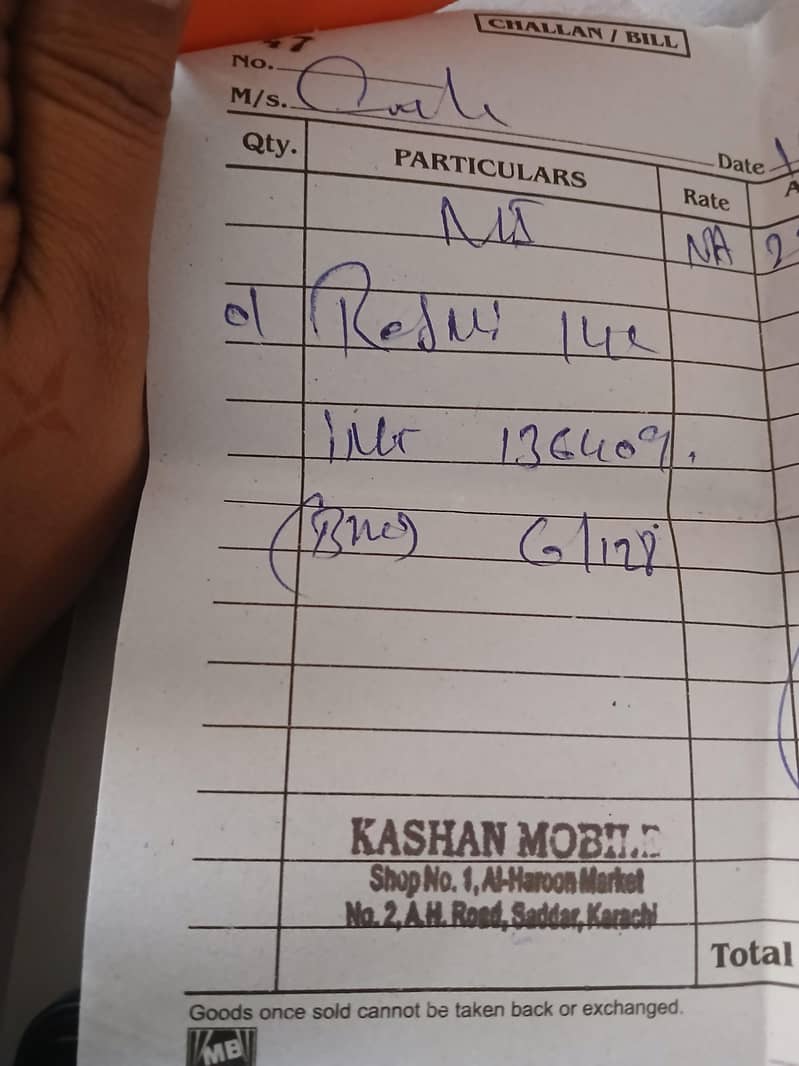 CHALLAN / BILL
47
No.
M/s. Cash
Date
Qty. PARTICULARS Rate A
MI NA 2
01 Redmi 14c
imei 136409.
6/128
KASHAN MOBILE
Shop No. 1, Al-Haroon Market
No. 2, A.H. Road, Saddar, Karachi
Total
Goods once sold cannot be taken back or exchanged.
MB